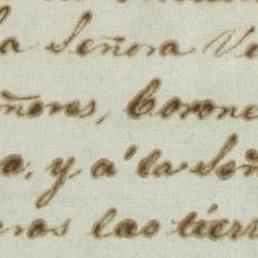 la Señora Va
ñores, Corone
a, y á la Señ
eros las tierr